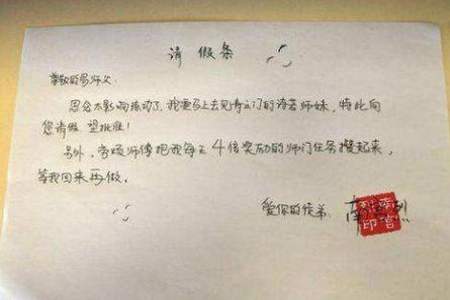 请假条
尊敬的易师父:
恩公太影响活动了,我要马上去见清之门的洛若师妹,特此向
您请假,望批准!
另外,劳烦师傅把我每天4倍奖励的师门任务攒起来,
等我回来再做。
爱你的徒弟: